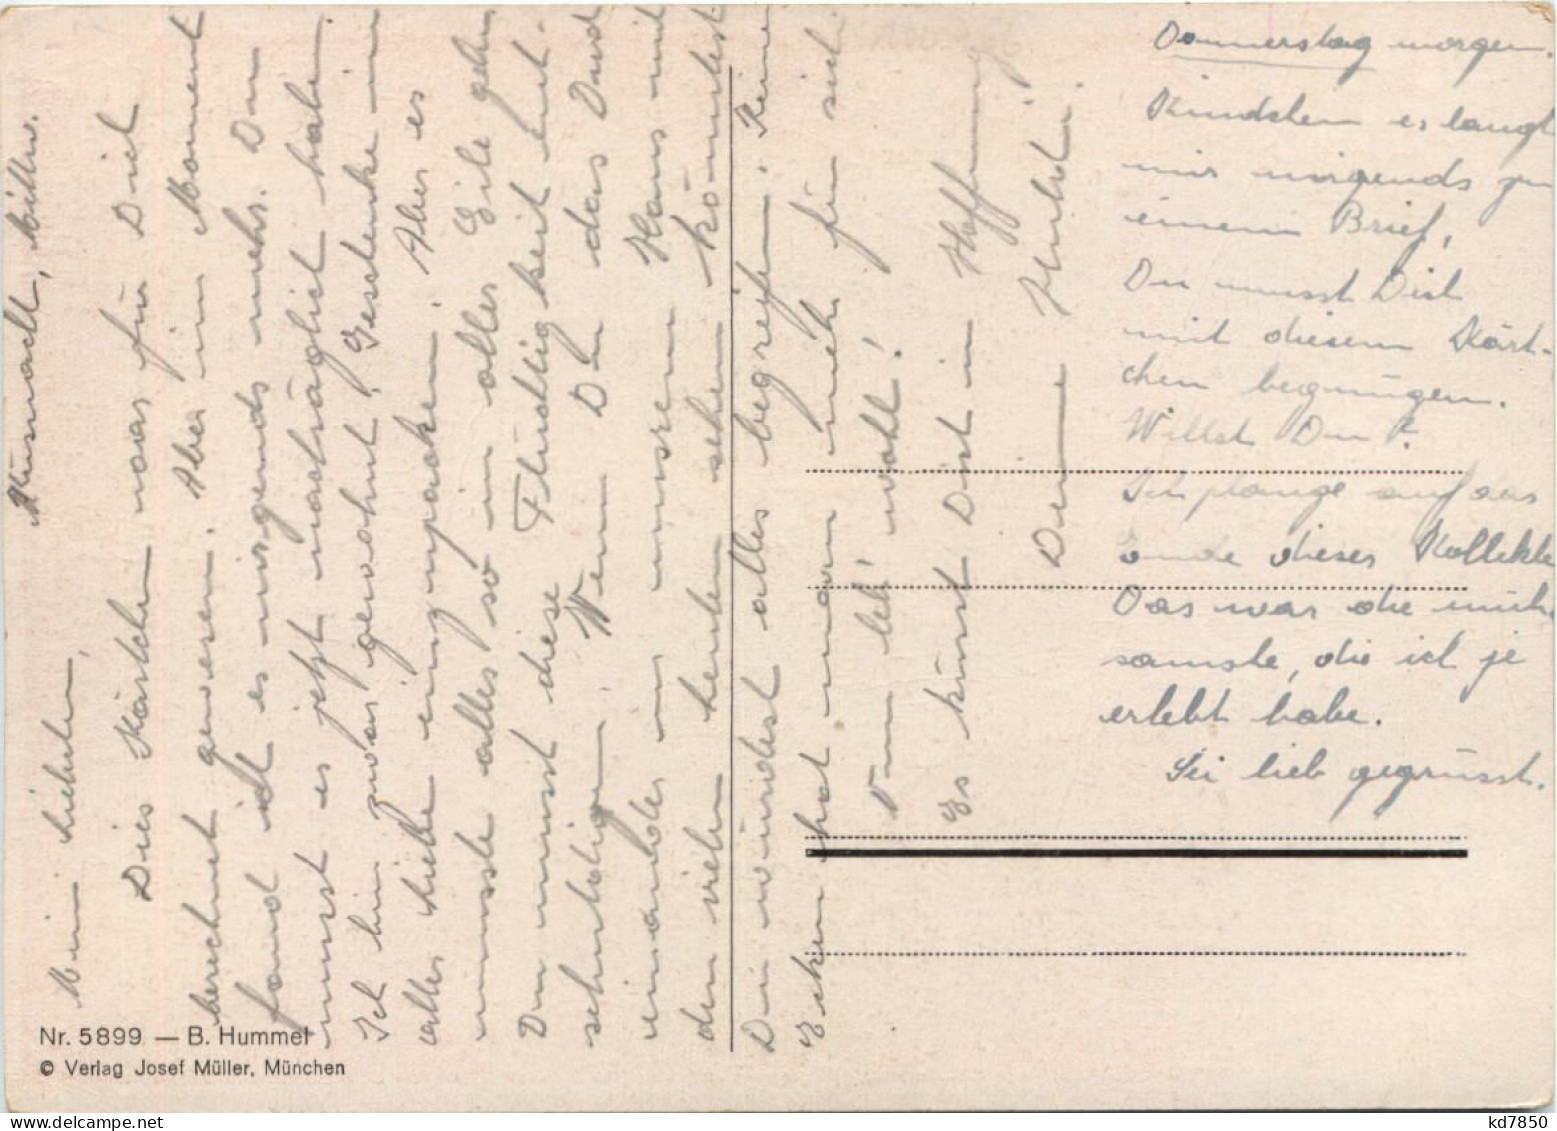 Küsnacht, Mittw.
Mein Liebster,
Dies Kärtchen war für Dich
berechnet gewesen. Aber im Moment
fand ich es nirgends mehr. Du
musst es jetzt nachträglich haben.
Ich bin zwar gewohnt, Geschenke in
alles Liebe einzupacken. Aber es
musste alles so in aller Eile gehen
Du musst diese Flüchtigkeit ent-
schuldigen. Wenn Du das Durch
einander in unsrem Haus mit
den vielen Leuten sehen könntest
Du würdest alles begreifen. Keine
Ecken hat man mehr für sich.
Nun leb' wohl!
Es küsst Dich in Hoffnung
Deine
Donnerstag morgen.
Kindchen es langt
mir nirgends zu
einem Brief,
Du musst Dich
mit diesem Kärt-
chen begnügen.
Willst Du?
Ich plange auf das
Ende dieser Kollekte
Das war die müh
samste, die ich je
erlebt habe.
Sei lieb gegrüsst.
Nr. 5899 — B. Hummel
© Verlag Josef Müller, München
kd7850